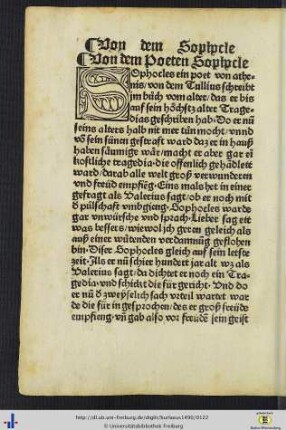 Von dem Sophocle
Von dem Poeten Sophocle
Sophocles ein poet von athe-
nis/ von dem Tullius schreibt
im bůch vom alter/ das er bis
auf sein höchstz alter Trage-
dias geschriben hab. Do er nů
seins alters halb nit mer tůn mocht/ vnnd
võ sein sünen gestrafft ward daz er in hauß
haben säumig wär/ macht er aber gar ei
kostliche tragedia/ die offenlich gehādlett
ward/ darab alle welt groß verwunderen
vnd freüd empfieng. Eins mals het in einer
gefragt als Valerius sagt/ ob er noch mit
d pulschaft vmbgieng. Sophocles warde
gar vnwürsche vnd sprach. Lieber sag ett
was bessers/ wie wol ich geren geleich als
auß einer wütenden verdamnüß geflohen
bin. Diser Sophocles gleich auf sein letste
zeit. Als er nů schier hundert jar alt wz als
Valerius sagt/ da dichtet er noch ein Tra-
gedia/ vnd schickt die für gericht. Vnd do
er nů d zweyfelich sach vrteil wartet war
de die für in gesprochen/ des er groß freüde
empfieng. vñ gab also vor freudẽ sein geist
http://dl.ub.uni-freiburg.de/diglit/burlaeus1490/0122
© Universitätsbibliothek Freiburg